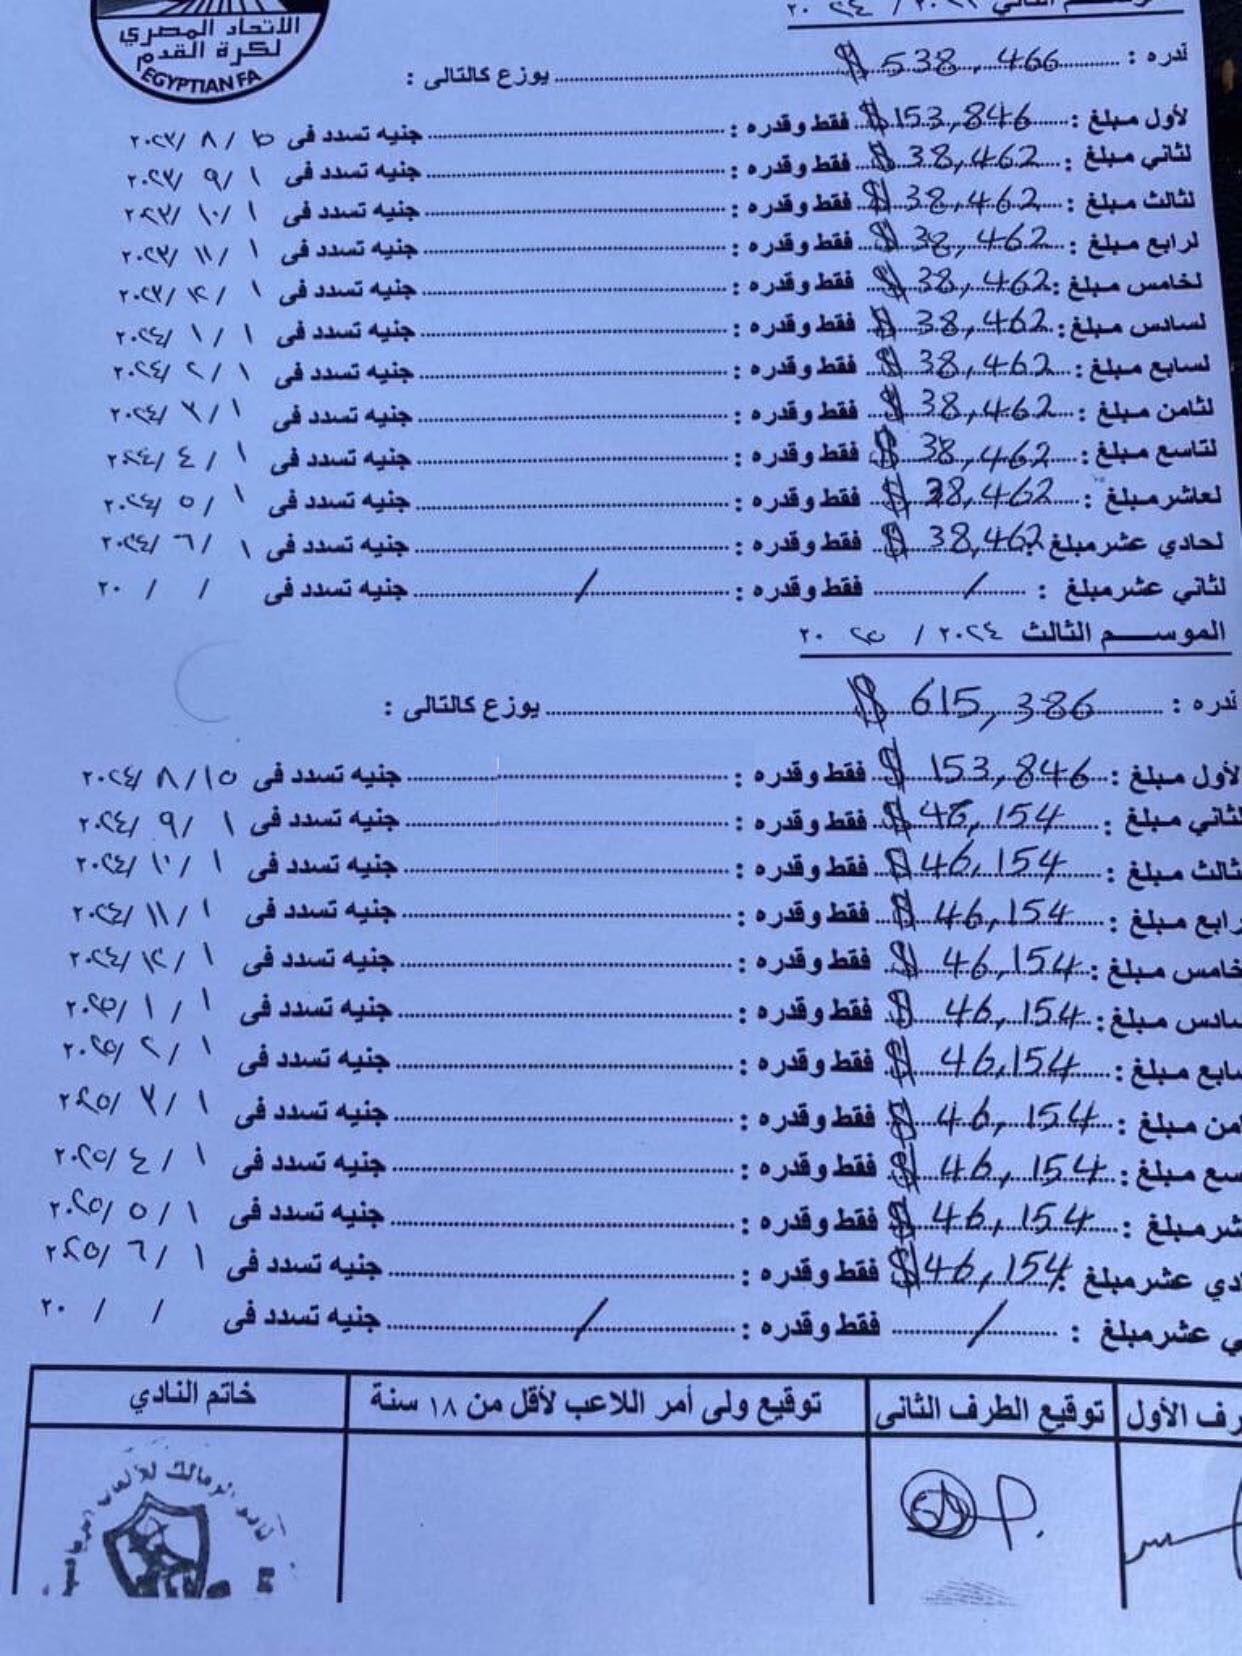 الاتحاد المصري
لكرة القدم
EGYPTIAN FA
٢٠٢٤ / ٢٠
قدره : $ 538,466 يوزع كالتالى :
لأول مبلغ : $ 153,846 فقط وقدره : جنيه تسدد فى ١٥ / ٨ / ٢٠٢٣
لثاني مبلغ : $ 38,462 فقط وقدره : جنيه تسدد فى ١ / ٩ / ٢٠٢٣
لثالث مبلغ : $ 38,462 فقط وقدره : جنيه تسدد فى ١ / ١٠ / ٢٠٢٣
لرابع مبلغ : $ 38,462 فقط وقدره : جنيه تسدد فى ١ / ١١ / ٢٠٢٣
لخامس مبلغ : $ 38,462 فقط وقدره : جنيه تسدد فى ١ / ١٢ / ٢٠٢٣
لسادس مبلغ : $ 38,462 فقط وقدره : جنيه تسدد فى ١ / ١ / ٢٠٢٤
لسابع مبلغ : $ 38,462 فقط وقدره : جنيه تسدد فى ١ / ٢ / ٢٠٢٤
لثامن مبلغ : $ 38,462 فقط وقدره : جنيه تسدد فى ١ / ٣ / ٢٠٢٤
لتاسع مبلغ : $ 38,462 فقط وقدره : جنيه تسدد فى ١ / ٤ / ٢٠٢٤
لعاشر مبلغ : $ 38,462 فقط وقدره : جنيه تسدد فى ١ / ٥ / ٢٠٢٤
لحادي عشر مبلغ : $ 38,462 فقط وقدره : جنيه تسدد فى ١ / ٦ / ٢٠٢٤
لثاني عشر مبلغ : / فقط وقدره : / جنيه تسدد فى / / ٢٠
الموســـم الثالث ٢٠٢٤ / ٢٠٢٥
قدره : $ 615,386 يوزع كالتالى :
لأول مبلغ : $ 153,846 فقط وقدره : جنيه تسدد فى ١٥ / ٨ / ٢٠٢٤
لثاني مبلغ : $ 46,154 فقط وقدره : جنيه تسدد فى ١ / ٩ / ٢٠٢٤
ثالث مبلغ : $ 46,154 فقط وقدره : جنيه تسدد فى ١ / ١٠ / ٢٠٢٤
رابع مبلغ : $ 46,154 فقط وقدره : جنيه تسدد فى ١ / ١١ / ٢٠٢٤
خامس مبلغ : $ 46,154 فقط وقدره : جنيه تسدد فى ١ / ١٢ / ٢٠٢٤
سادس مبلغ : $ 46,154 فقط وقدره : جنيه تسدد فى ١ / ١ / ٢٠٢٥
سابع مبلغ : $ 46,154 فقط وقدره : جنيه تسدد فى ١ / ٢ / ٢٠٢٥
امن مبلغ : $ 46,154 فقط وقدره : جنيه تسدد فى ١ / ٣ / ٢٠٢٥
سع مبلغ : $ 46,154 فقط وقدره : جنيه تسدد فى ١ / ٤ / ٢٠٢٥
شر مبلغ : $ 46,154 فقط وقدره : جنيه تسدد فى ١ / ٥ / ٢٠٢٥
دي عشر مبلغ : $ 46,154 فقط وقدره : جنيه تسدد فى ١ / ٦ / ٢٠٢٥
ي عشر مبلغ : / فقط وقدره : / جنيه تسدد فى / / ٢٠
رف الأول توقيع الطرف الثانى توقيع ولى أمر اللاعب لأقل من ١٨ سنة خاتم النادي
نادي الزمالك للألعاب